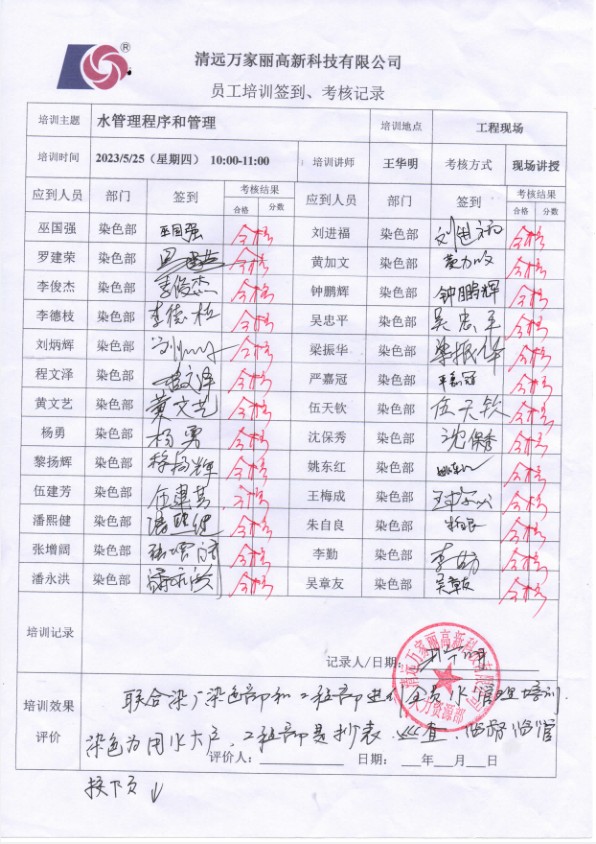 ®
清远万家丽高新科技有限公司
员工培训签到、考核记录
培训主题 水管理程序和管理 培训地点 工程现场
培训时间 2023/5/25（星期四） 10:00-11:00 培训讲师 王华明 考核方式 现场讲授
应到人员 部门 签到 考核结果 应到人员 部门 签到 考核结果
合格 分数 合格 分数
巫国强 染色部 巫国强 合格 刘进福 染色部 刘进福 合格
罗建荣 染色部 合格 黄加文 染色部 合格
李俊杰 染色部 李俊杰 合格 钟鹏辉 染色部 钟鹏辉 合格
李德枝 染色部 李德枝 合格 吴忠平 染色部 吴忠平 合格
刘炳辉 染色部 合格 梁振华 染色部 梁振华 合格
程文泽 染色部 程文泽 合格 严嘉冠 染色部 合格
黄文艺 染色部 黄文艺 合格 伍天钦 染色部 伍天钦 合格
杨勇 染色部 杨勇 合格 沈保秀 染色部 沈保秀 合格
黎扬辉 染色部 合格 姚东红 染色部 合格
伍建芳 染色部 伍建芳 合格 王梅成 染色部 合格
潘熙健 染色部 潘熙健 合格 朱自良 染色部 合格
张增阔 染色部 合格 李勤 染色部 合格
潘永洪 染色部 潘永洪 合格 吴章友 染色部 吴章友 合格
培训记录
记录人/日期：
清远万家丽高新科技有限公司
人力资源部
培训效果 联合染厂染色部和工程部进行全员水管理培训.
评价 染色为用水大户、工程部是抄表、巡查、监督监管
评价人： 日期： 年 月 日
接下页 ↓